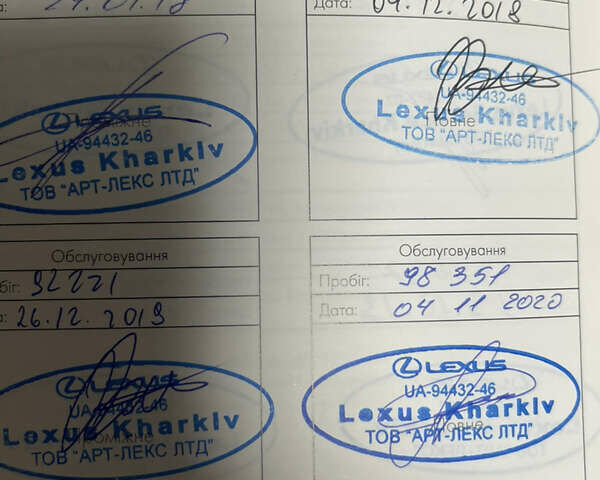 Дата: 04.12.2018
LEXUS
UA-94432-46
Lexus Kharkiv
ТОВ "АРТ-ЛЕКС ЛТД"
LEXUS
UA-94432-46
Lexus Kharkiv
Повне
ТОВ "АРТ-ЛЕКС ЛТД"
Обслуговування
92221
26.12.2019
LEXUS
UA-94432-46
Lexus Kharkiv
Проміжне
ТОВ "АРТ-ЛЕКС ЛТД"
Обслуговування
Пробіг: 98 351
Дата: 04 11 2020
LEXUS
UA-94432-46
Lexus Kharkiv
Повне
ТОВ "АРТ-ЛЕКС ЛТД"